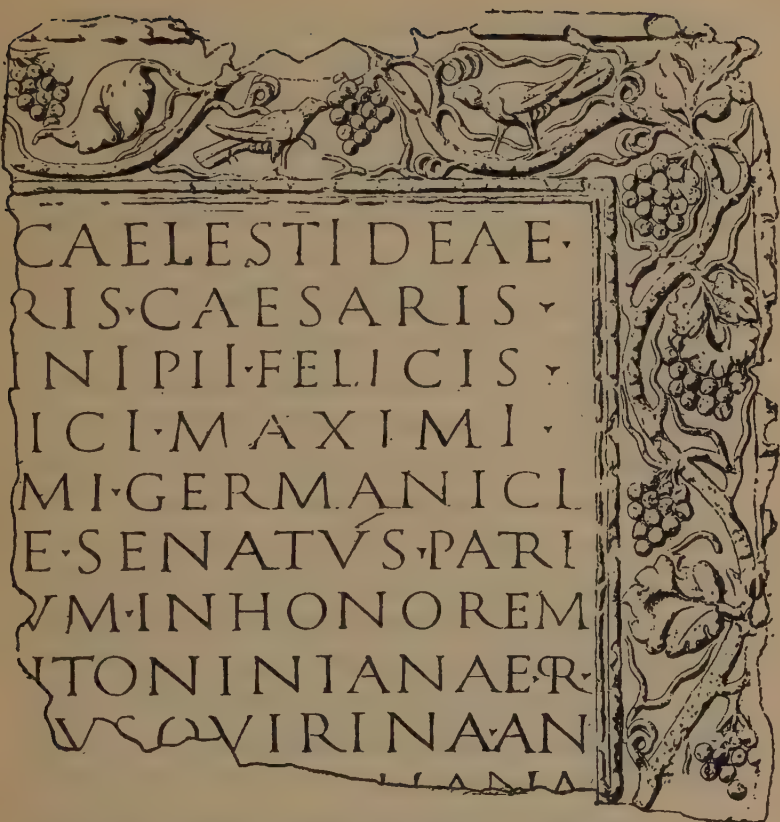 CAELESTI DEAE·
RIS·CAESARIS·
INI PII·FELICIS·
ICI·MAXIMI·
MI·GERMANICI
E·SENATVS·PATRI
VM·IN HONOREM
NTONINIANAE·R·
VS QVIRINA·AN